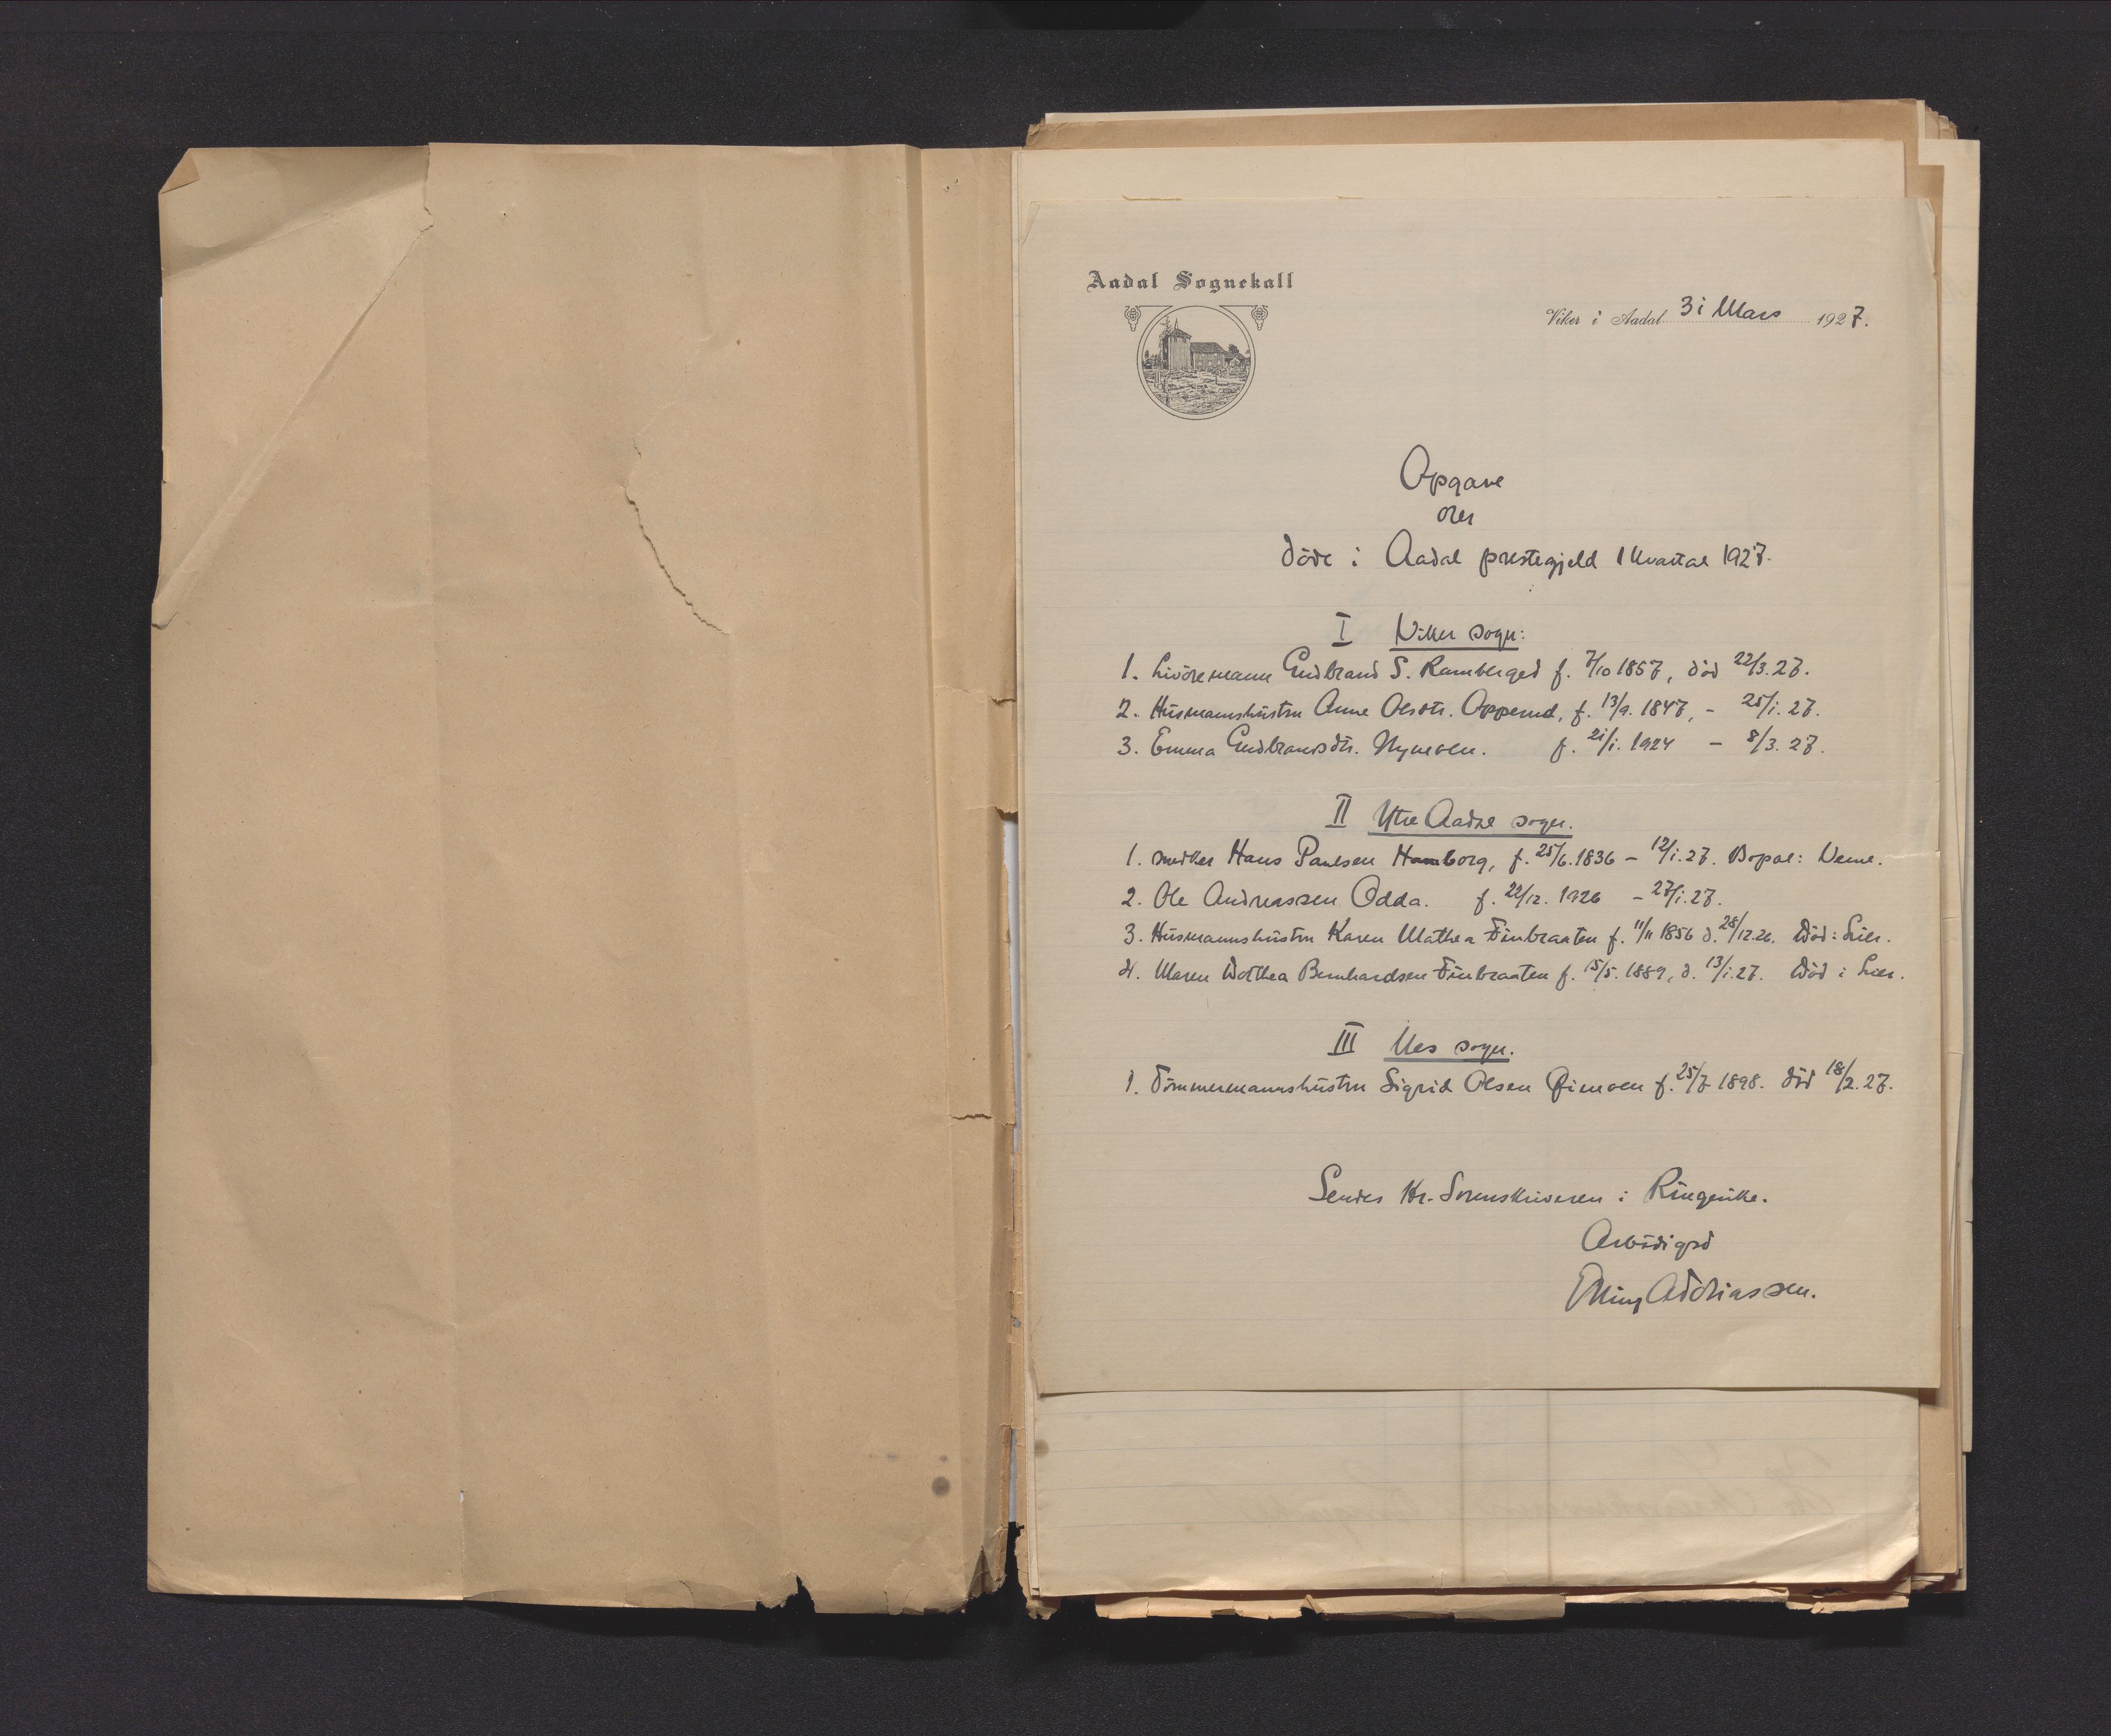 Aadal Sognekall
Viker i Aadal 31 Mars 1927.
Opgave
over
døde i Aadal prestegjeld 1 kvartal 1927.
I Viker sogn:
1. Livøremann Gudbrand S. Ramberged f. 7/10 1857, død 22/3.27.
2. Husmannshustru Anne Olsdtr. Opperud, f. 13/9. 1847, - 25/1. 27.
3. Emma Gudbrandsdtr. Nymoen. f. 21/1. 1924 - 8/3. 27.
II Ytre Aadal sogn.
1. snekker Hans Paulsen Homborg, f. 25/6. 1836 - 12/1. 27. Bopæl: Veme.
2. Ole Andreassen Odda. f. 22/12. 1926 - 27/1. 27.
3. Husmannshustru Karen Mathea Finbraaten f. 11/11 1856 d. 28/12.26. Død i Lier.
4. Maren Dorthea Bernhardsen Finbraaten f. 15/5. 1889, d. 13/1.27. Død i Lier.
III Nes sogn.
1. Tømmermannshustru Sigrid Olsen Øimoen f. 25/7 1898. død 18/2. 27.
Sendes Hr. Sorenskriveren i Ringerike.
Ærbødigst